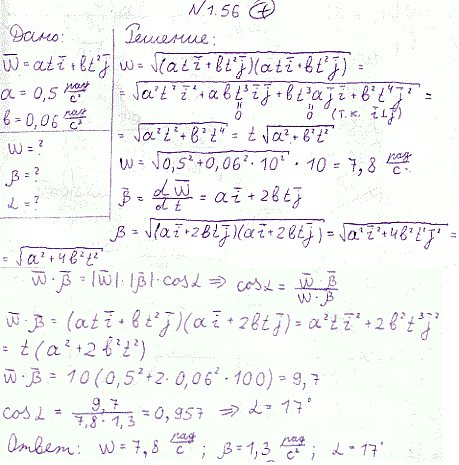 N 1.56 (7)
Дано:
w̅ = at i̅ + bt² j̅
a = 0,5 рад/с²
b = 0,06 рад/с³
w = ?
β = ?
α = ?
Решение:
w = √((at i̅ + bt² j̅)(at i̅ + bt² j̅)) =
= √(a²t² i̅² + abt³ i̅ j̅ + bt³a j̅ i̅ + b²t⁴ j̅²) =
0 0 (т.к. i̅⊥j̅)
= √(a²t² + b²t⁴) = t √(a² + b²t²)
w = √(0,5² + 0,06² · 10²) · 10 = 7,8 рад/с
β̅ = dw̅/dt = a i̅ + 2bt j̅
β = √((a i̅ + 2bt j̅)(a i̅ + 2bt j̅)) = √(a² i̅² + 4b²t² j̅²) =
= √(a² + 4b²t²)
w̅ · β̅ = |w̅| · |β̅| · cosα ⇒ cosα = w̅ · β̅ / w · β
w̅ · β̅ = (at i̅ + bt² j̅)(a i̅ + 2bt j̅) = a²t i̅² + 2b²t³ j̅²
= t(a² + 2b²t²)
w̅ · β̅ = 10(0,5² + 2 · 0,06² · 100) = 9,7
cosα = 9,7 / 7,8 · 1,3 = 0,957 ⇒ α = 17°
Ответ: w = 7,8 рад/с ; β = 1,3 рад/с² ; α = 17°